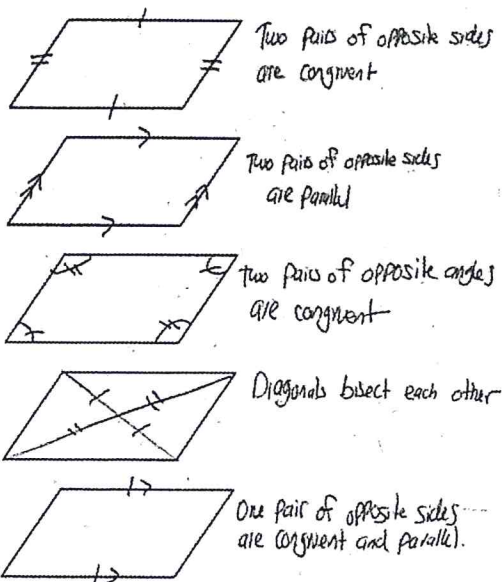 Two pairs of opposite sides
are congruent
Two pairs of opposite sides
are parallel
two pairs of opposite angles
are congruent
Diagonals bisect each other
One pair of opposite sides
are congruent and parallel.